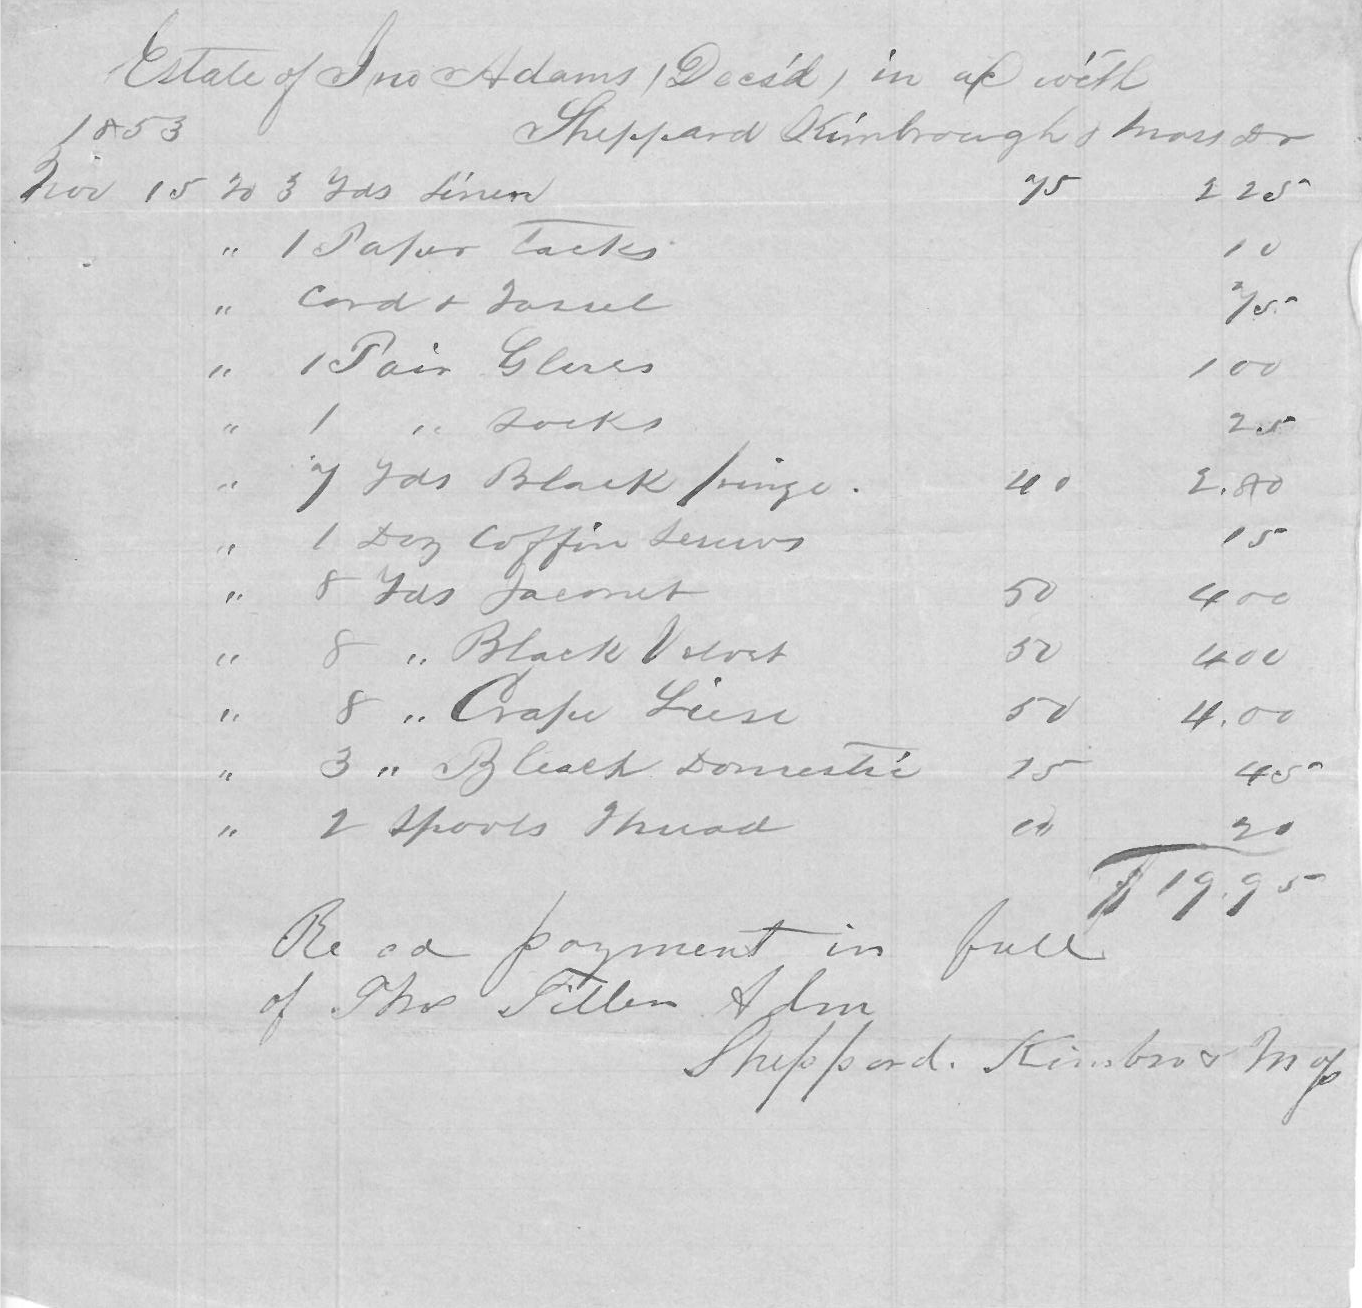 Estate of Jno Adams (Decs'd) in a/c with
1853 Sheppard Kimbrough & Moss Dr
Nov 15 To 3 Yds Linen 75 2 25
" 1 Paper Tacks 10
" Cord & Tassel 75
" 1 Pair Gloves 1 00
" 1 " Socks 25
" 7 Yds Black fringe. 40 2.80
" 1 Doz Coffin Screws 15
" 8 Yds Jaconet 50 4 00
" 8 " Black Velvet 50 4 00
" 8 " Crape Liese 50 4.00
" 3 " Bleach Domestic 15 45
" 2 Spools Thread 10 20
$19.95
Recd payment in full
of Thos Tiller Adm
Sheppard. Kimbro & Moss